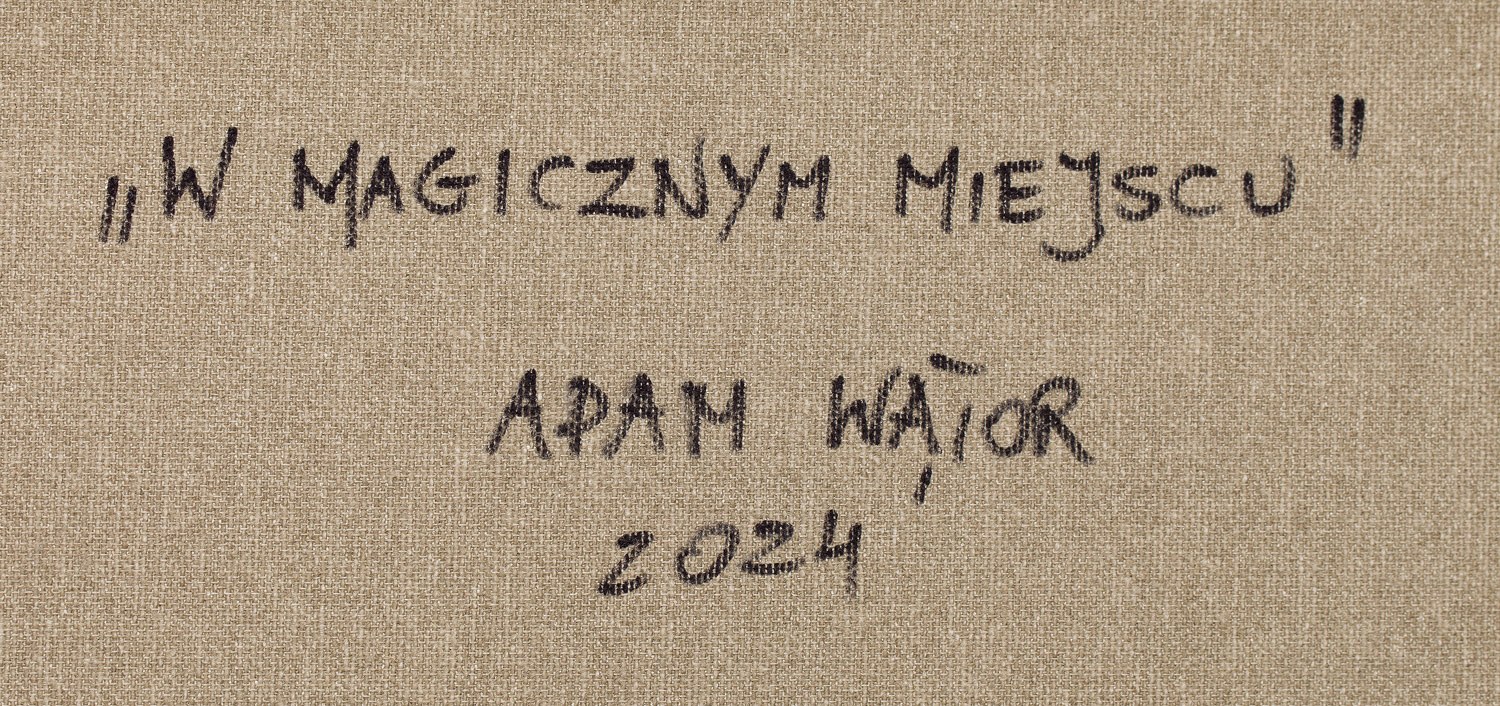 „W MAGICZNYM MIEJSCU"
ADAM WĄTOR
2024